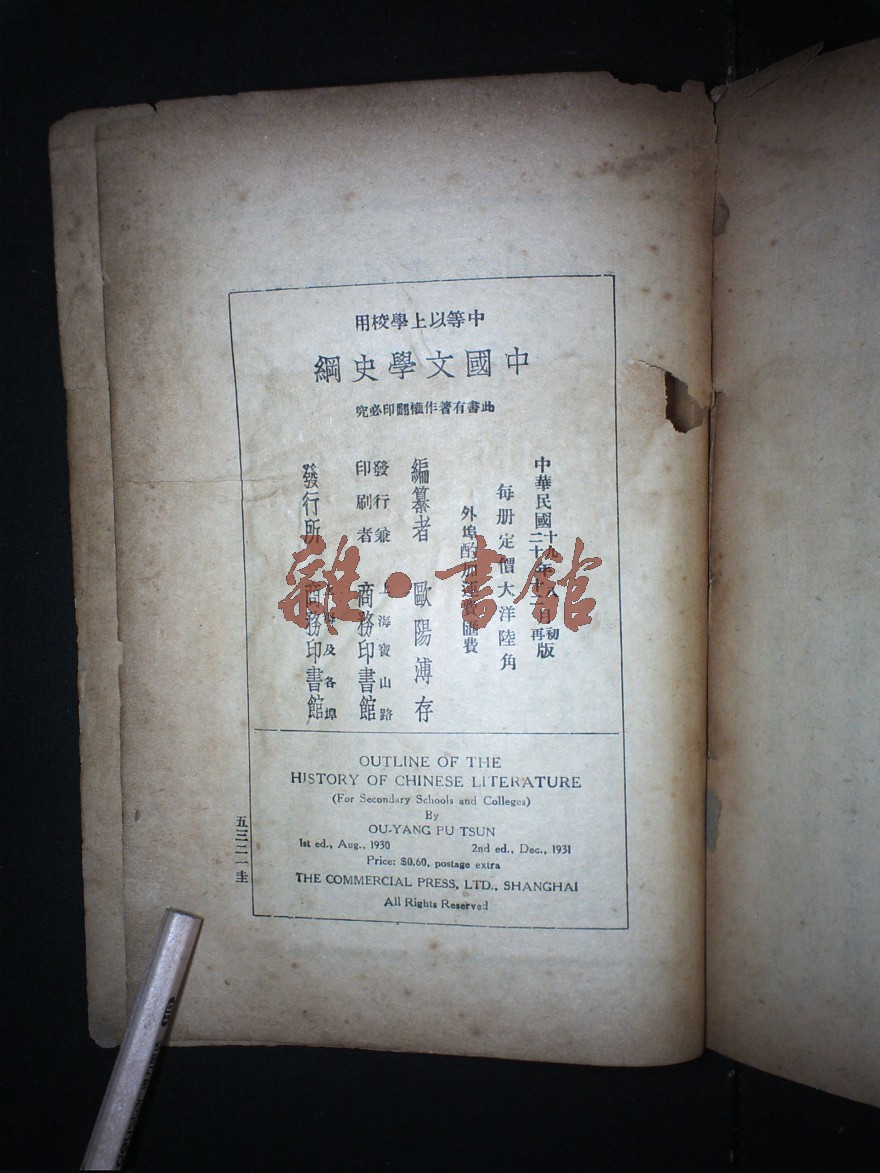 中等以上學校用
中國文學史綱
此書有著作權翻印必究
中華民國十九年八月初版
二十年十二月再版
每册定價大洋陸角
外埠酌加運費匯費
編纂者 歐陽溥存
發行兼印刷者 上海寶山路 商務印書館
發行所 上海及各埠 商務印書館
雜·書館
OUTLINE OF THE
HISTORY OF CHINESE LITERATURE
(For Secondary Schools and Colleges)
By
OU-YANG PU TSUN
1st ed., Aug., 1930 2nd ed., Dec., 1931
Price: $0.60, postage extra
THE COMMERCIAL PRESS, LTD., SHANGHAI
All Rights Reserved
五三二一圭